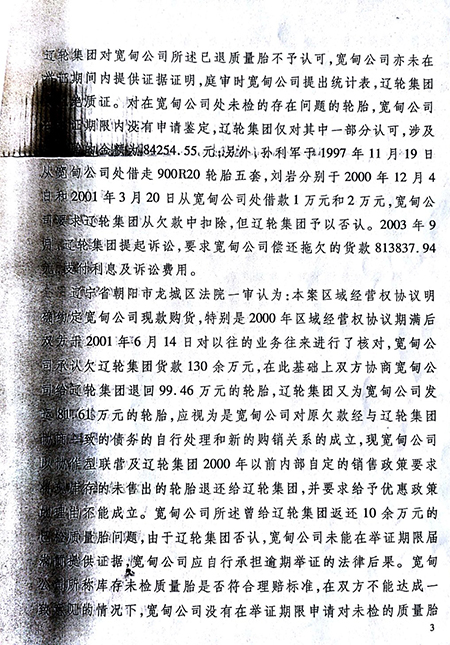 辽轮集团对宽甸公司所述已退质量胎不予认可,宽甸公司亦未在
期间内提供证据证明,庭审时宽甸公司提出统计表,辽轮集团
质证。对在宽甸公司处未检的存在问题的轮胎,宽甸公司
期限内没有申请鉴定,辽轮集团仅对其中一部分认可,涉及
84254.55元;另外,孙利军于1997年11月19日
从宽甸公司处借走900R20轮胎五套,刘岩分别于2000年12月4
日和2001年3月20日从宽甸公司处借款1万元和2万元,宽甸公
司要求辽轮集团从欠款中扣除,但辽轮集团予以否认。2003年9
月,辽轮集团提起诉讼,要求宽甸公司偿还拖欠的货款813837.94
付利息及诉讼费用。
辽宁省朝阳市龙城区法院一审认为:本案区域经营权协议明
定宽甸公司现款购货,特别是2000年区域经营权协议期满后
双方于2001年6月14日对以往的业务往来进行了核对,宽甸公
司承认欠辽轮集团货款130余万元,在此基础上双方协商宽甸公
司给辽轮集团退回99.46万元的轮胎,辽轮集团又为宽甸公司发
81.61万元的轮胎,应视为是宽甸公司对原欠款经与辽轮集团
致的债务的自行处理和新的购销关系的成立,现宽甸公司
型联营及辽轮集团2000年以前内部自定的销售政策要求
存的未售出的轮胎退还给辽轮集团,并要求给予优惠政策
不能成立。宽甸公司所述曾给辽轮集团返还10余万元的
质量胎问题,由于辽轮集团否认,宽甸公司未能在举证期限届
提供证据,宽甸公司应自行承担逾期举证的法律后果。宽甸
所称库存未检质量胎是否符合理赔标准,在双方不能达成一
的情况下,宽甸公司没有在举证期限申请对未检的质量胎
3